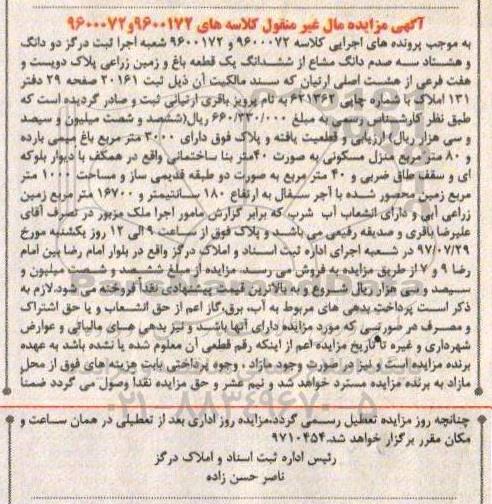 آگهی مزایده مال غیر منقول کلاسه های ۹۶۰۰۱۷۲و۹۶۰۰۰۷۲
به موجب پرونده های اجرایی کلاسه ۹۶۰۰۰۷۲ و ۹۶۰۰۱۷۲ شعبه اجرا ثبت درگز دو دانگ
و هشتاد سه صدم دانگ مشاع از ششدانگ یک قطعه باغ و زمین زراعی پلاک دویست و
هفت فرعی از هشت اصلی ارتیان که سند مالکیت آن ذیل ثبت ۲۰۱۶۱ صفحه ۲۹ دفتر
۱۳۱ املاک با شماره چاپی ۶۲۱۳۶۲ به نام پرویز باقری ارتیانی ثبت و صادر گردیده است که
طبق نظر کارشناس رسمی به مبلغ ۶۶۰/۳۳۰/۰۰۰ ریال(ششصد و شصت میلیون و سیصد
و سی هزار ریال) ارزیابی و قطعیت یافته و پلاک فوق دارای ۳۰۰۰ متر مربع باغ میمی بارده
و ۸۰ متر مربع منزل مسکونی به صورت ۴۰متر بنا ساختمانی واقع در همکف با دیوار بلوکه
ای و سقف طاق ضربی و ۴۰ متر مربع به صورت دو طبقه قدیمی ساز و مساحت ۱۰۰۰ متر
مربع زمین محصور شده با آجر سفال به ارتفاع ۱۸۰ سانتیمتر و ۱۶۷۰۰ متر مربع زمین
زراعی آبی و دارای انشعاب آب شرب که برابر گزارش مامور اجرا ملک مزبور در تصرف آقای
علیرضا باقری و صدیقه رفیعی می باشد و پلاک فوق از ساعت ۹ الی ۱۲ روز یکشنبه مورخ
۹۷/۰۷/۲۹ در شعبه اجرای اداره ثبت اسناد و املاک درگز واقع در بلوار امام رضا بین امام
رضا ۹ و ۷ از طریق مزایده به فروش می رسد. مزایده از مبلغ ششصد و شصت میلیون و
سیصد و سی هزار ریال شروع و به بالاترین قیمت پیشنهادی نقدا فروخته می شود.لازم به
ذکر است پرداخت بدهی های مربوط به آب، برق،گاز اعم از حق انشعاب و یا حق اشتراک
و مصرف در صورتیی که مورد مزایده دارای آنها باشد و نیز بدهی های مالیاتی و عوارض
شهرداری و غیره تا تاریخ مزایده اعم از اینکه رقم قطعی آن معلوم شده یا نشده باشد به عهده
برنده مزایده است و نیز در صورت وجود مازاد ، وجوه پرداختی بابت هزینه های فوق از محل
مازاد به برنده مزایده مسترد خواهد شد و نیم عشر و حق مزایده نقدا وصول می گردد ضمنا
چنانچه روز مزایده تعطیل رسمی گردد،مزایده روز اداری بعد از تعطیلی در همان ساعت و
مکان مقرر برگزار خواهد شد.۹۷۱۰۴۵۴
رئیس اداره ثبت اسناد و املاک درگز
ناصر حسن زاده
۰۲۱-۸۸۳۴۹۶۷۰-۵